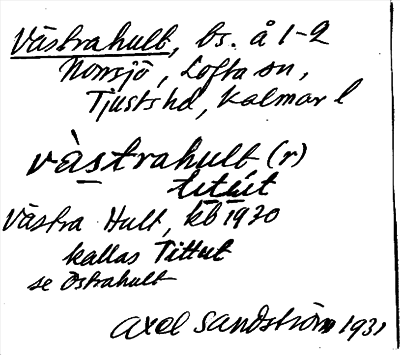 Västrahult, bs. å 1-2
Norrsjö, Lofta sn,
Tjusts hd, Kalmar l
vàstrahult, (r)
titut
Västra Hult, kb 1930
kallas Tittut
se Östrahult
Axel Sandström 1931